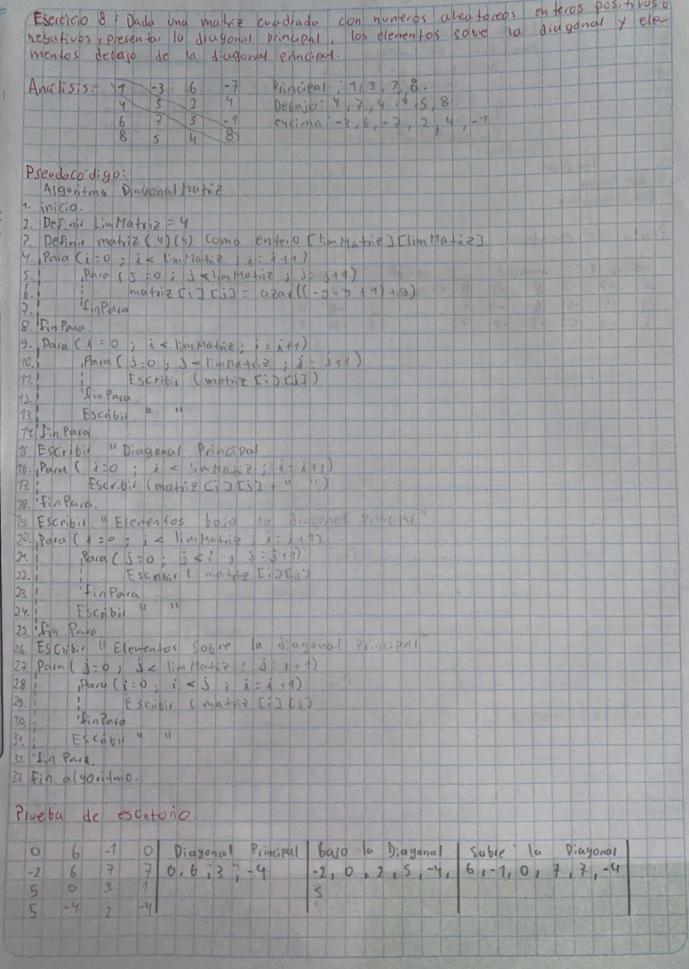 Ejercicio 8: Dada una matriz cuadrada con numeros aleatoreos enteros positivos o
negativos, presentar la diagonal principal, los elementos sobre la diagonal y ele-
mentos debajo de la diagonal principal.
Analisis: 1 -3 6 -7 Principal: 1, 3, 3, 8.
4 3 2 4 Debajo: 4, 7, 4, 6, 5, 8
6 7 3 -1 encima: -3, 6, -7, 2, 4, -1
8 5 4 8
Pseudocodigo:
Algoritmo Diagonal Matriz
1. inicio.
2. Definir LimMatriz = 4
3. Definir matriz (4)(4) como entero [limMatriz][limMatriz]
4. Para (i=0; i< limMatriz; i=i+1)
5. Para (j=0; j<limMatriz; j=j+1)
6. matriz[i][j] = azar((-9-9+1)+9)
7. finPara
8. FinPara.
9. Para (i=0; i< limMatriz; i=i+1)
10. Para (j=0; j<limMatriz; j=j+1)
11. Escribir (matriz[i][j])
12. finPara
13. Escribir " "
14. FinPara
15. Escribir "Diagonal Principal
16. Para (i=0; i< limMatriz; i=i+1)
17. Escribir (matriz[i][j] + " ")
18. finPara.
19. Escribir "Elementos bajo la diagonal Principal"
20. Para (i=0; i< limMatriz; i=i+1)
21. Para (j=0; j<i; j=j+1)
22. Escribir (matriz[i][j]
23. finPara
24. Escribir " "
25. fin Para
26. Escribir "Elementos Sobre la diagonal Principal"
27. Para (j=0; j< limMatriz; j=j+1)
28. Para (i=0; i<j; i=i+1)
29. Escribir (matriz[i][j])
30. finPara
31. Escribir " "
32. Fin Para.
33 fin algoritmo.
Prueba de escritorio.
0 6 -1 0 Diagonal Principal bajo la Diagonal Sobre la Diagonal
-2 6 7 7 0, 6, 3, -4 -2, 0, 2, 5, -4, 6, -1, 0, 7, 7, -4
5 0 3 1 5
5 -4 2 -4